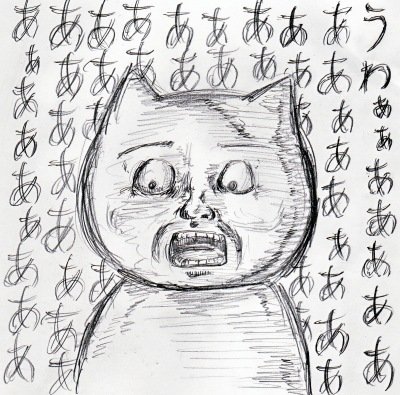 うわぁぁああああああ
あああああああああ
あああああ
ああ
ああ
ああ
ああ
ああああ
あああああああああ
ああああああああああ